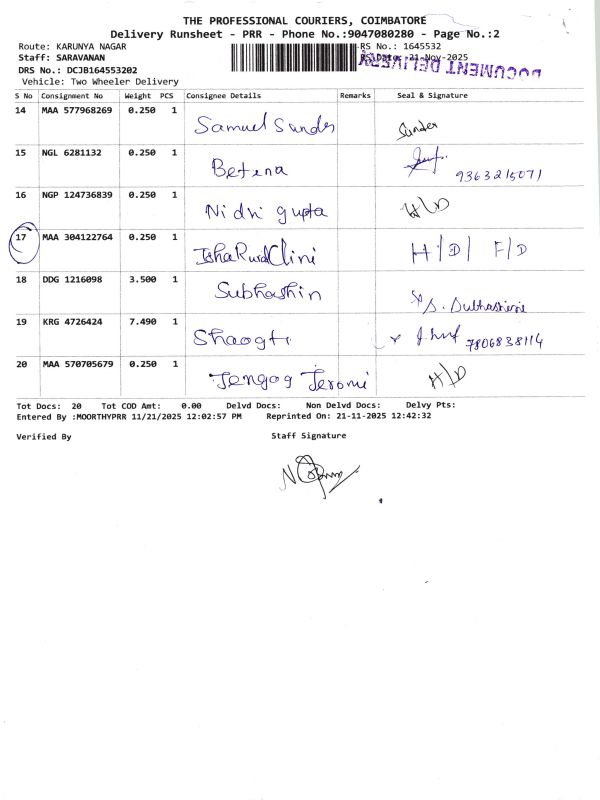 THE PROFESSIONAL COURIERS, COIMBATORE
Delivery Runsheet - PRR - Phone No.:9047080280 - Page No.:2
Route: KARUNYA NAGAR
RS No.: 1645532
Staff: SARAVANAN
21-Nov-2025
DOCUMENT DELIVERY
DRS No.: DCJB164553202
Vehicle: Two Wheeler Delivery
S No Consignment No Weight PCS Consignee Details Remarks Seal & Signature
14 MAA 577968269 0.250 1 Samuel Sunder Sunder
15 NGL 6281132 0.250 1 Betena 9363215071
16 NGP 124736839 0.250 1 Nidhi gupta H/D
17 MAA 304122764 0.250 1 Isha Rural Clini H/D/ F/D
18 DDG 1216098 3.500 1 Subhashin S. Subhashini
19 KRG 4726424 7.490 1 Shaogti 7806838114
20 MAA 570705679 0.250 1 Jengog Jeromi H/D
Tot Docs: 20 Tot COD Amt: 0.00 Delvd Docs: Non Delvd Docs: Delvy Pts:
Entered By :MOORTHYPRR 11/21/2025 12:02:57 PM Reprinted On: 21-11-2025 12:42:32
Verified By Staff Signature